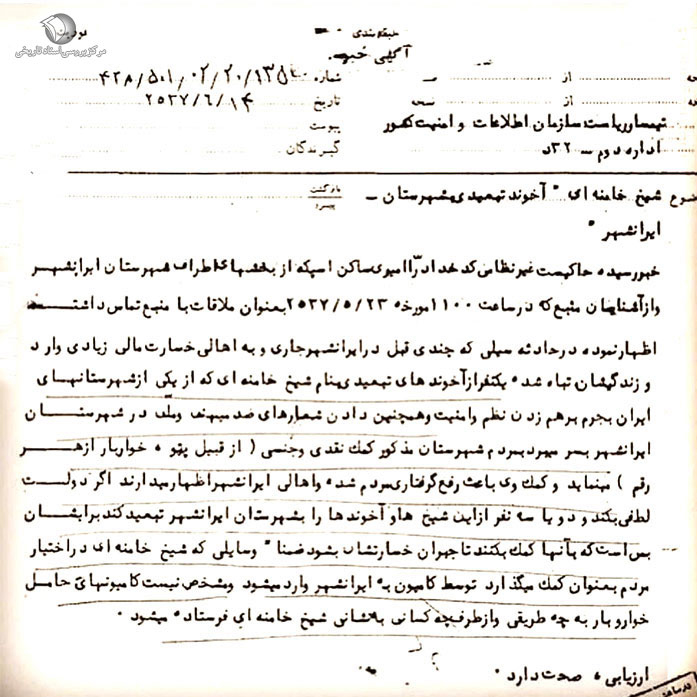 مرکز بررسی اسناد تاریخی
طبقه بندی
آگهی خبر
شماره ۴۲۸/۵۰۱/۰۲/۲۰/۱۳۵
از
تاریخ ۲۵۳۷/۶/۱۴
نسخه
از
پیوست
تیمسار ریاست سازمان اطلاعات و امنیت کشور
گیرندگان
اداره دوم ــ ۳۲د
بازگشت
پیرو
موضوع شیخ خامنه ای " آخوند تبعیدی بشهرستان ــ
ایرانشهر "
خبر رسیده حاکیست غیرنظامی که خداد رّا امیری ساکن اسپکه از بخشهای اطراف شهرستان ایرانشهر
و از آشنایان منبع که در ساعت ۱۱۰۰ مورخه ۲۵۳۷/۵/۲۳ بعنوان ملاقات با منبع تماس داشته
اظهار نموده در حادثه سیلی که چندی قبل در ایرانشهر جاری و به اهالی خسارت مالی زیادی وارد
و زندگیشان تباه شده یکنفر از آخوندهای تبعیدی بنام شیخ خامنه ای که از یکی از شهرستانهای
ایران بجرم برهم زدن نظم و امنیت و همچنین دادن شعارهای ضد میهنی و ملّی در شهرستان
ایرانشهر بسر میبرد بمردم شهرستان مذکور کمک نقدی و جنسی ( از قبیل پتو ، خواربار از هر
رقم ) مینماید و کمک وی باعث رفع گرفتاری مردم شده و اهالی ایرانشهر اظهار میدارند اگر دولت
لطفی بکند و دو یا سه نفر از این شیخ ها و آخوندها را بشهرستان ایرانشهر تبعید کند برایشان
بس است که بآنها کمک بکنند تا جبران خسارتشان بشود ضمنا" وسایلی که شیخ خامنه ای در اختیار
مردم بعنوان کمک میگذارد توسط کامیون به ایرانشهر وارد میشود و مشخص نیست کامیونهای حامل
خواروبار به چه طریقی و از طرف چه کسانی به نشانی شیخ خامنه ای فرستاده میشود .
ارزیابی ، صحت دارد .